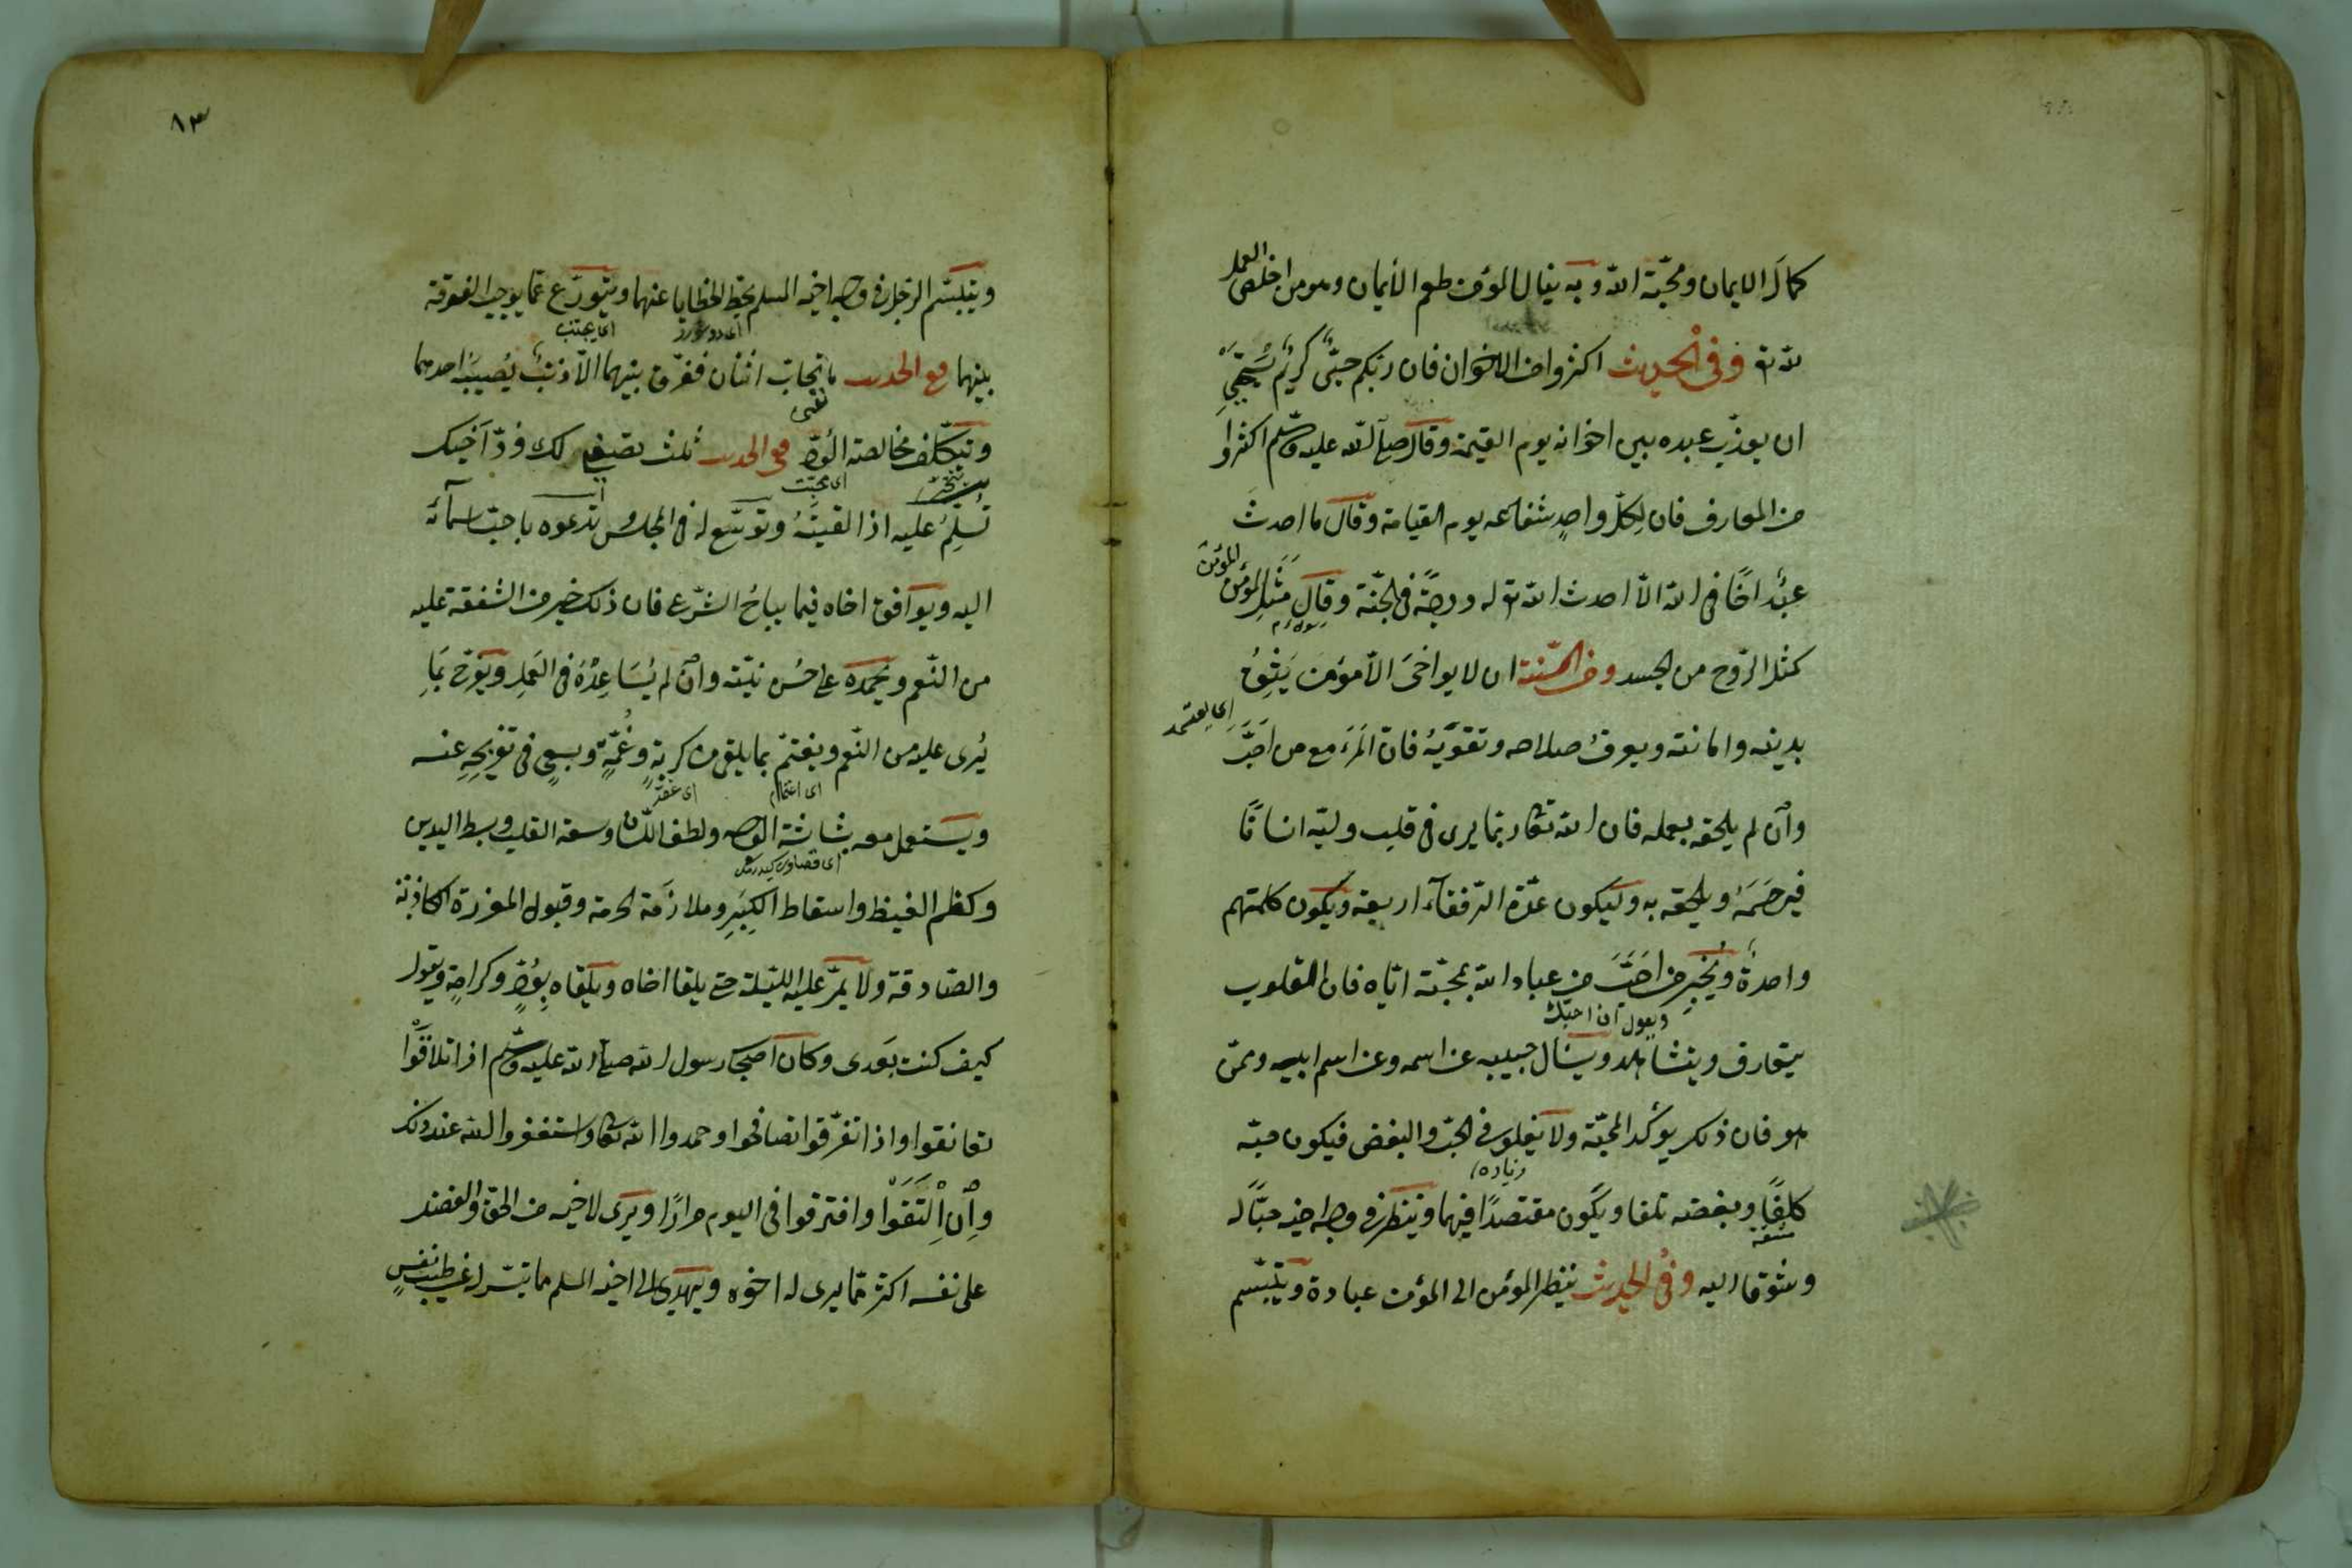 كمالَ الايمان ومحبّة الله وبه ينال المؤمن طعم الايمان وهو من اخلص العمل
لله تع وفى الحديث اكثروا من الاخوان فان ربكم حىٌّ كريمٌ يستحيى
ان يعذّب عبده بين اخوانه يوم القيمة وقال صلى الله عليه وسلم اكثروا
من المعارف فان لِكلّ واحدٍ شفاعه يوم القيامة وقال ما احدث
عبدٌ اخًا فى الله الّا احدث الله تع له درجةً فى الجنّة وقال مَثَل المؤمن
المؤمن
كمثل الرّوح من الجسد ومن السّنة ان لا يواخىَ الّا مؤمن يَثِقُ
اى يعتمد
بدينه وامانته ويعرف صلاحه وتقوّيهُ فانّ المَرءَ مع من اَحَبَّ
وان لم يلحقه بعمله فان الله تعالى ربّما يرى فى قلب وليّه انسانًا
فيرحَمَهُ ويلحقه به وليكون عدّة الرّفقآء اربعة ويكون كلمتهم
واحدةً ويُخبِر من اَحَبَّ من عباد الله بمحبّته ايّاه فان القلوب
ويقول ان احبّك
يتعارف ويتشاهد ويسَال حبيبه عن اسمه وعن اسم ابيه وممّن
هو فان ذلك يؤكّد المحبّة ولا يغلو فى الحبّ والبغض فيكون حبّه
زياده
كلفًا وبغضه تلفا ويكون مقتصدًا فيهما وينظر فى وجه اخيه حبًّا له
وشوقا اليه وفى الحديث نظر المؤمن الى المؤمن عبادة ويتبسّم
٨٣
ويتبسّم الرّجل فى وجه اخيه المسلم يحطّ الخطايا عنهما ويتورّع عمّا يوجب الفرقة
اى يجتنب
بينهما فى الحديث ما تحابّ اثنان ففرّق بينهما الّا ذنبٌ يُصيبُ احدهما
نفى
وتكلّف مخالصة الوُدّ فى الحديث ثلث تصفين لك ودّ اَخيك
اى محبّت
تُسَلِّمُ عليه اذا لقيتَهُ وتوسّع له فى المجلس وتدعوه باحبّ اسمآئه
اليه ويوافق اخاه فيما يباحُ الشّرع فان ذلك خير من الشّفقة عليه
من النّعم ويحمده على حُسن نيّته وان لم يُسَاعِدْهُ فى العَمل ويفرح بمَا
يُرى عليه من النّعم ويغتمّ بما يلقى من كربةٍ وغُمّةٍ ويسعى فى تفريجِهِ عنه
اى اغتمام
ويستعمل معه بشاشة الوجه ولطف اللّسان وسعة القلب وبسط اليدين
وكظم الغيظ واسقاط الكِبَرِ وملازمَة الحرمة وقبول المعذرة الكاذبة
والصّادقة ولا يمرّ عليه اللّيلة حتى يلقا اخاه ويلقاه بِوُدٍّ وكرامةٍ ويقول
كيف كنت بَعدى وكان اصحاب رسول الله صلى الله عليه وسلم اذا تلاقَوْا
تعانقوا واذا تفرّقوا تصافحوا وحمدوا الله تعالى واستغفروا الله عند ذلك
واِن اِلْتَقَوْا وافترقوا فى اليوم مرارًا ويرى لاخيه من الحقّ والفضل
على نفسه اكثر ممّا يرى له اخوه ويهدى الى اخيه المسلم ما تيسّر له عن طيب نفسٍ